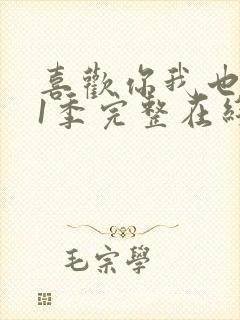 喜歡你我也
1季完整在
毛宗學